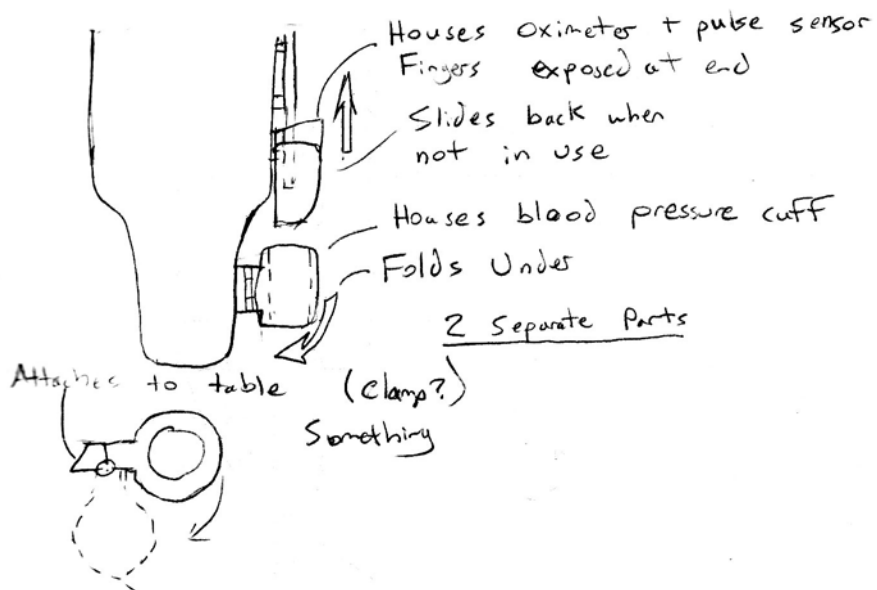 Houses Oximeter + pulse sensor
Fingers exposed at end
Slides back when
not in use
Houses blood pressure cuff
Folds Under
2 Separate Parts
Attaches to table (Clamp?)
Something